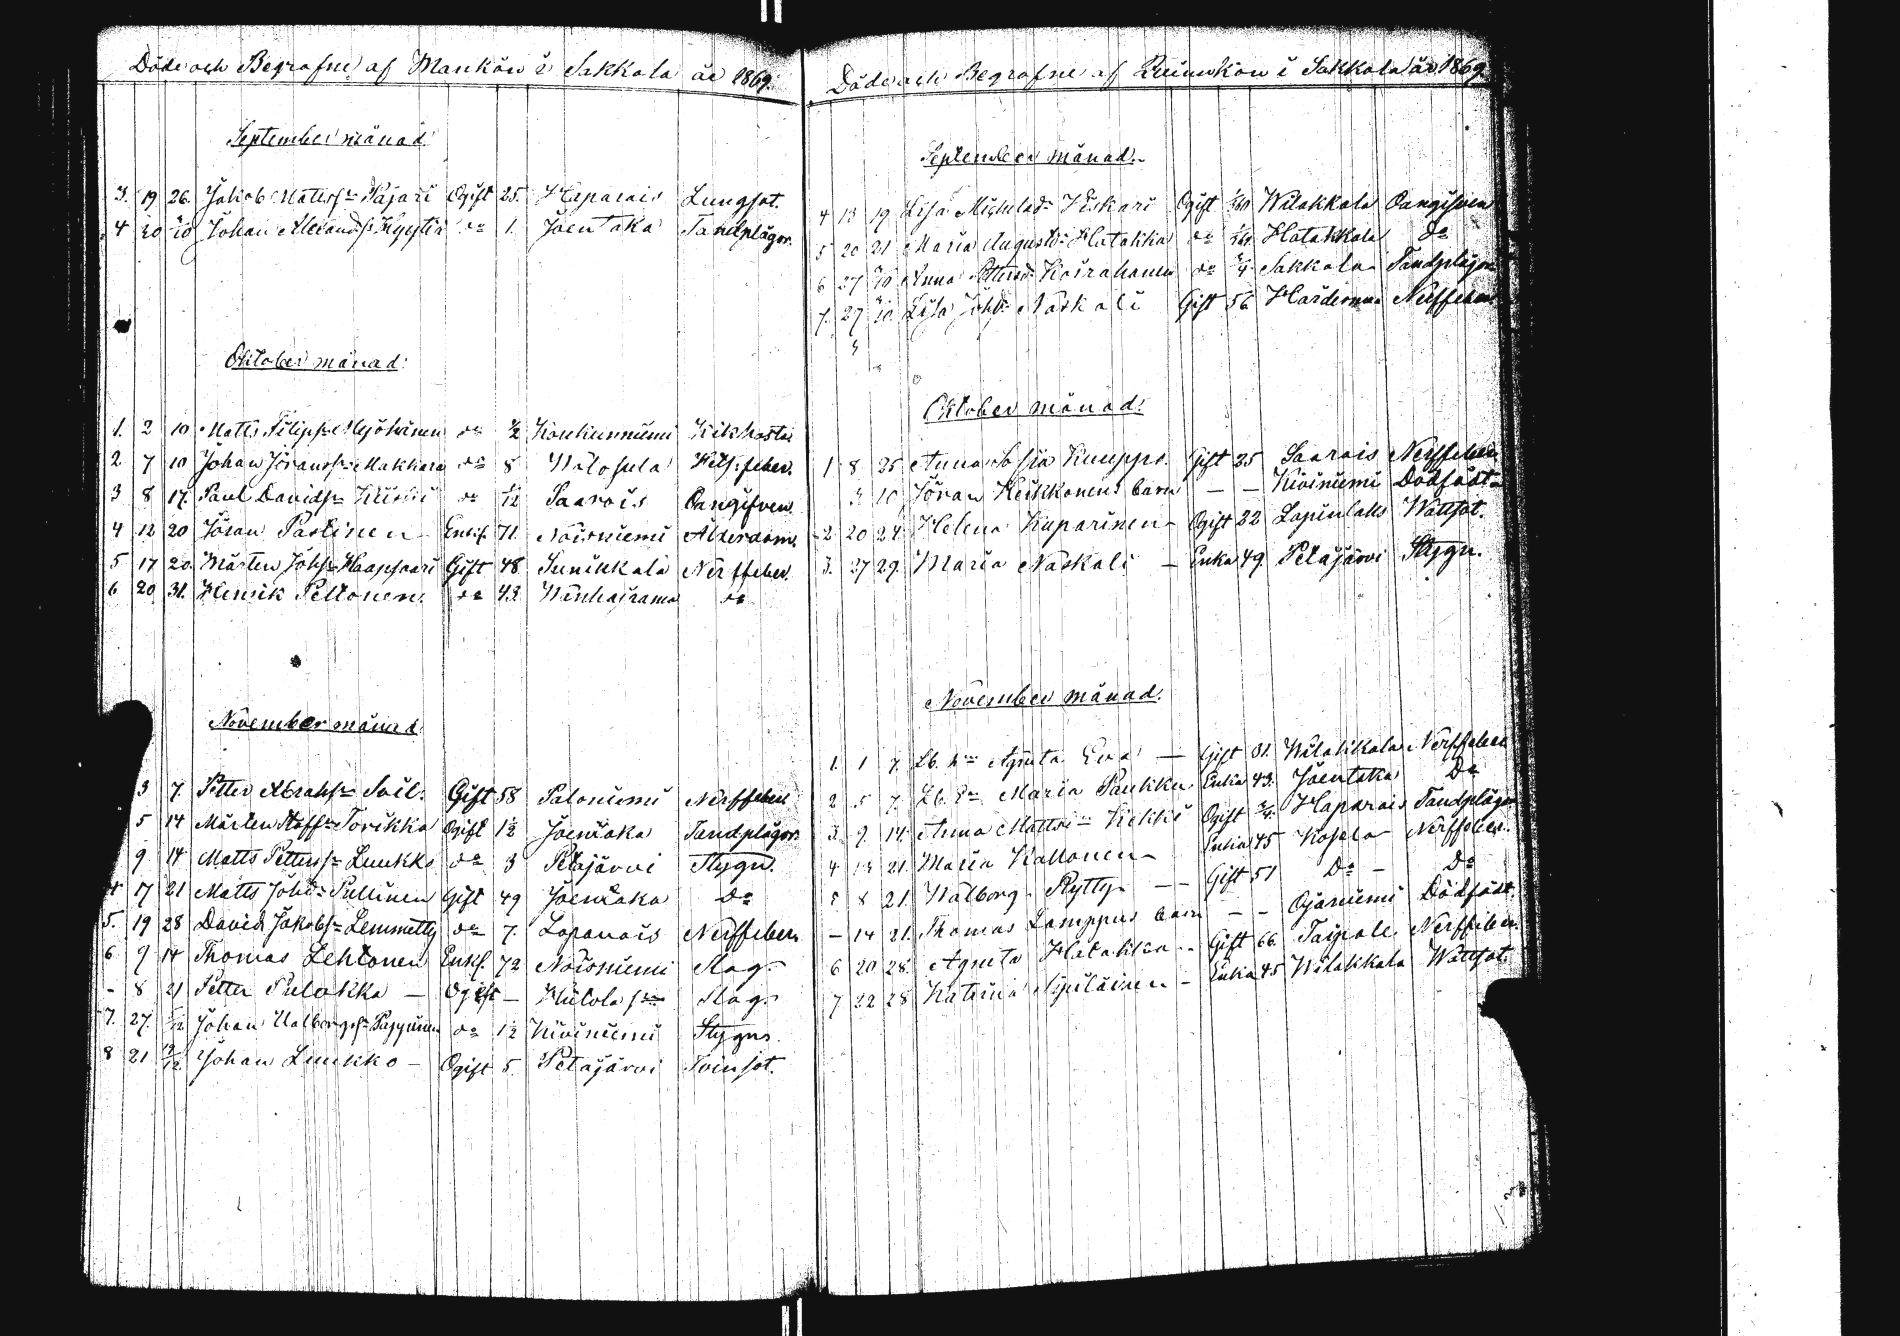 Döde och Begrafne af Mankön i Sakkola år 1869.
September månad.
3. 19 26. Jakob Mattss:n Pajari Ogift 25. Haparais Lungsot.
4 20 Johan Alexand:s Kyystiä d:o 1. Joentaka Tandplågor.
Oktober månad.
1. 2 10 Matts Filipps:n d:o ½ Koukunniemi Kikhosta
2 7 10 Johan Jöranss:n Makkara d:o 8 feber.
3 8 17. Paul Davids:n d:o 1/12 Saarois Oangifven.
4 12 20 Jöran Pastinen Enkl. 71. Noisniemi Ålderdom.
5 17 20. Mårten Johs:n Haapsaari Gift 48 Sunikkala Nerffeber.
6 20 31. Henrik Peltonen. d:o 43 d:o
November månad.
3 7. Petter Abrahs:n Gift 58 Paloniemi Nerffeber
5 14 Mårten Staffs:n Torikka Ogift 1½ Joentaka Tandplågor.
9 14 Matts Petterss:n Luukko d:o 3 Petäjärvi Stygn.
4 17 21 Matts Johs:n Pullinen Gift 49 Joentaka D:o
5. 19 28 David Jakobs:n Lemmetty d:o 7. Lapanais Nerffeber.
6 9 14 Thomas Lehtonen Enkl. 72 Noisniemi Slag.
- 8 21 Petter Pulakka — Ogift — Slag.
7. 27. Johan d:o 1½ Kiviniemi Stygn.
8 21 12/12 Johan Luukko — Ogift 5. Petäjärvi
Döde och Begrafne af Qvinnkön i Sakkola år 1869.
September månad.
4 13 19 Lisa Michelsd:r Kiskari Ogift Wilakkala Oangifven
5 20 21 Maria Augustsd:r Hatakka d:o Hatakkala D:o
6 27 Anna Pettersd:r Koirahanen d:o ¾ Sakkola Tandplågor
7. 27 Lisa Johsd:r Naskali Gift 56 Nerffeber
Oktober månad.
1 8 25 Anna Sofia Kuuppo. Gift 35 Saarois Nerffeber.
3 10 Jöran Heikkonens barn — — Kiviniemi Dödfödt
2 20 24. Helena Kaparinen Ogift 22 Lapinlaks Wattsot.
3. 27 29. Maria Naskali — Enka 49. Petäjärvi Stygn.
November månad.
1. 1 7. Agneta Eva — Gift 31. Wilakkala Nerffeber
2 5 7. Maria Paukku Enka 43. Joentaka D:o
3. 9 14. Anna Mattsd:r Kekki Ogift ¾ Haparais Tandplågor
4 13 21. Maria Kallonen Enka 45 Kosela Nerffeber.
8 21. Walborg Ryttyr — — Gift 51 D:o — D:o
— 14 21. Thomas Lamppus barn — — Ojaniemi Dödfödt.
6 20 28. Agneta Hatakka Gift 66. Taipale Nerffeber.
7 22 28 Katarina — Enka 45 Wilakkala Wattsot.